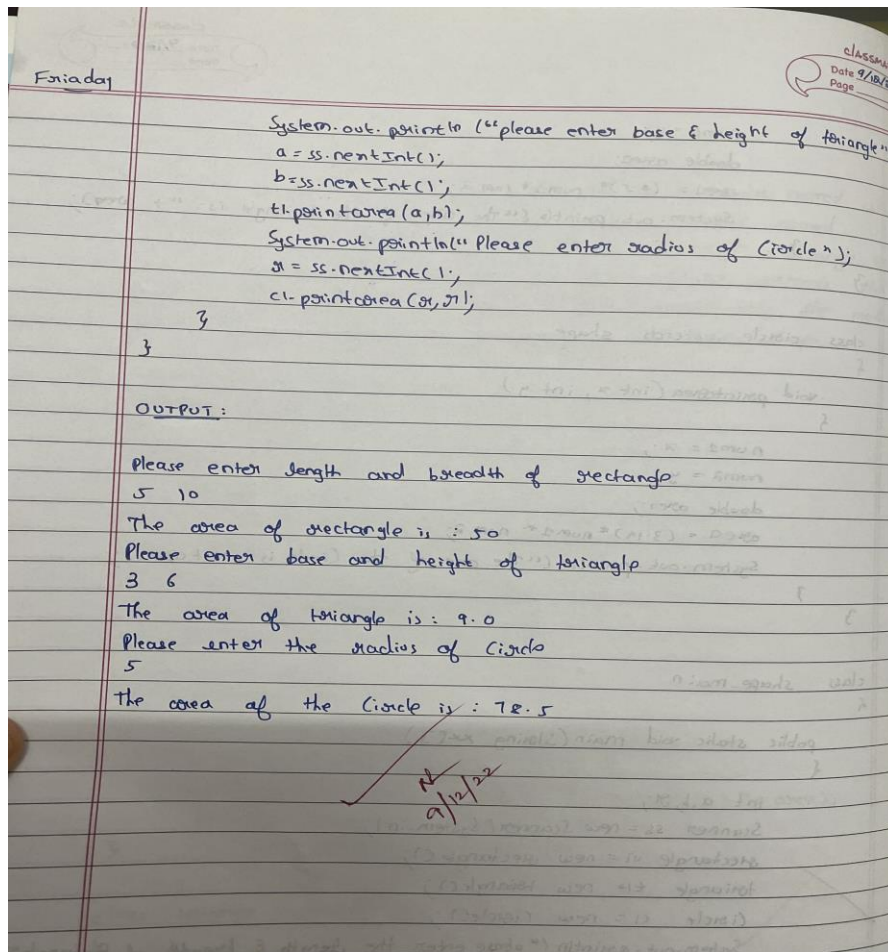 classma
Date 9/12/2
Page
Friaday
System.out.println (“please enter base & height of triangle”
a = ss.nextInt();
b = ss.nextInt();
t1.printarea (a,b);
System.out.println(“Please enter radius of Circle”);
r = ss.nextInt();
c1.printarea (r,r);
}
}
OUTPUT :
Please enter length and breadth of rectangle
5 10
The area of rectangle is : 50
Please enter base and height of triangle
3 6
The area of triangle is : 9.0
Please enter the radius of Circle
5
The area of the Circle is : 78.5
9/12/22